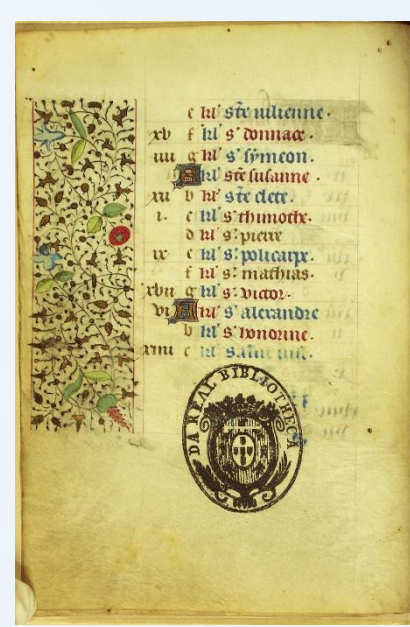 e kl' ste iulienne.
xv f kl' s' donnace.
iiii g kl' s' symeon.
A kl' ste susanne.
xii b kl' ste clete.
i. c kl' s' thimothe.
d kl' s' pierre
ix e kl' s' policarpe.
f kl' s' mathias.
xvii g kl' s' victor.
vi A kl' s' alexandre
b kl' s' honorine.
xiiii c kl'
DA REAL BIBLIOTHECA